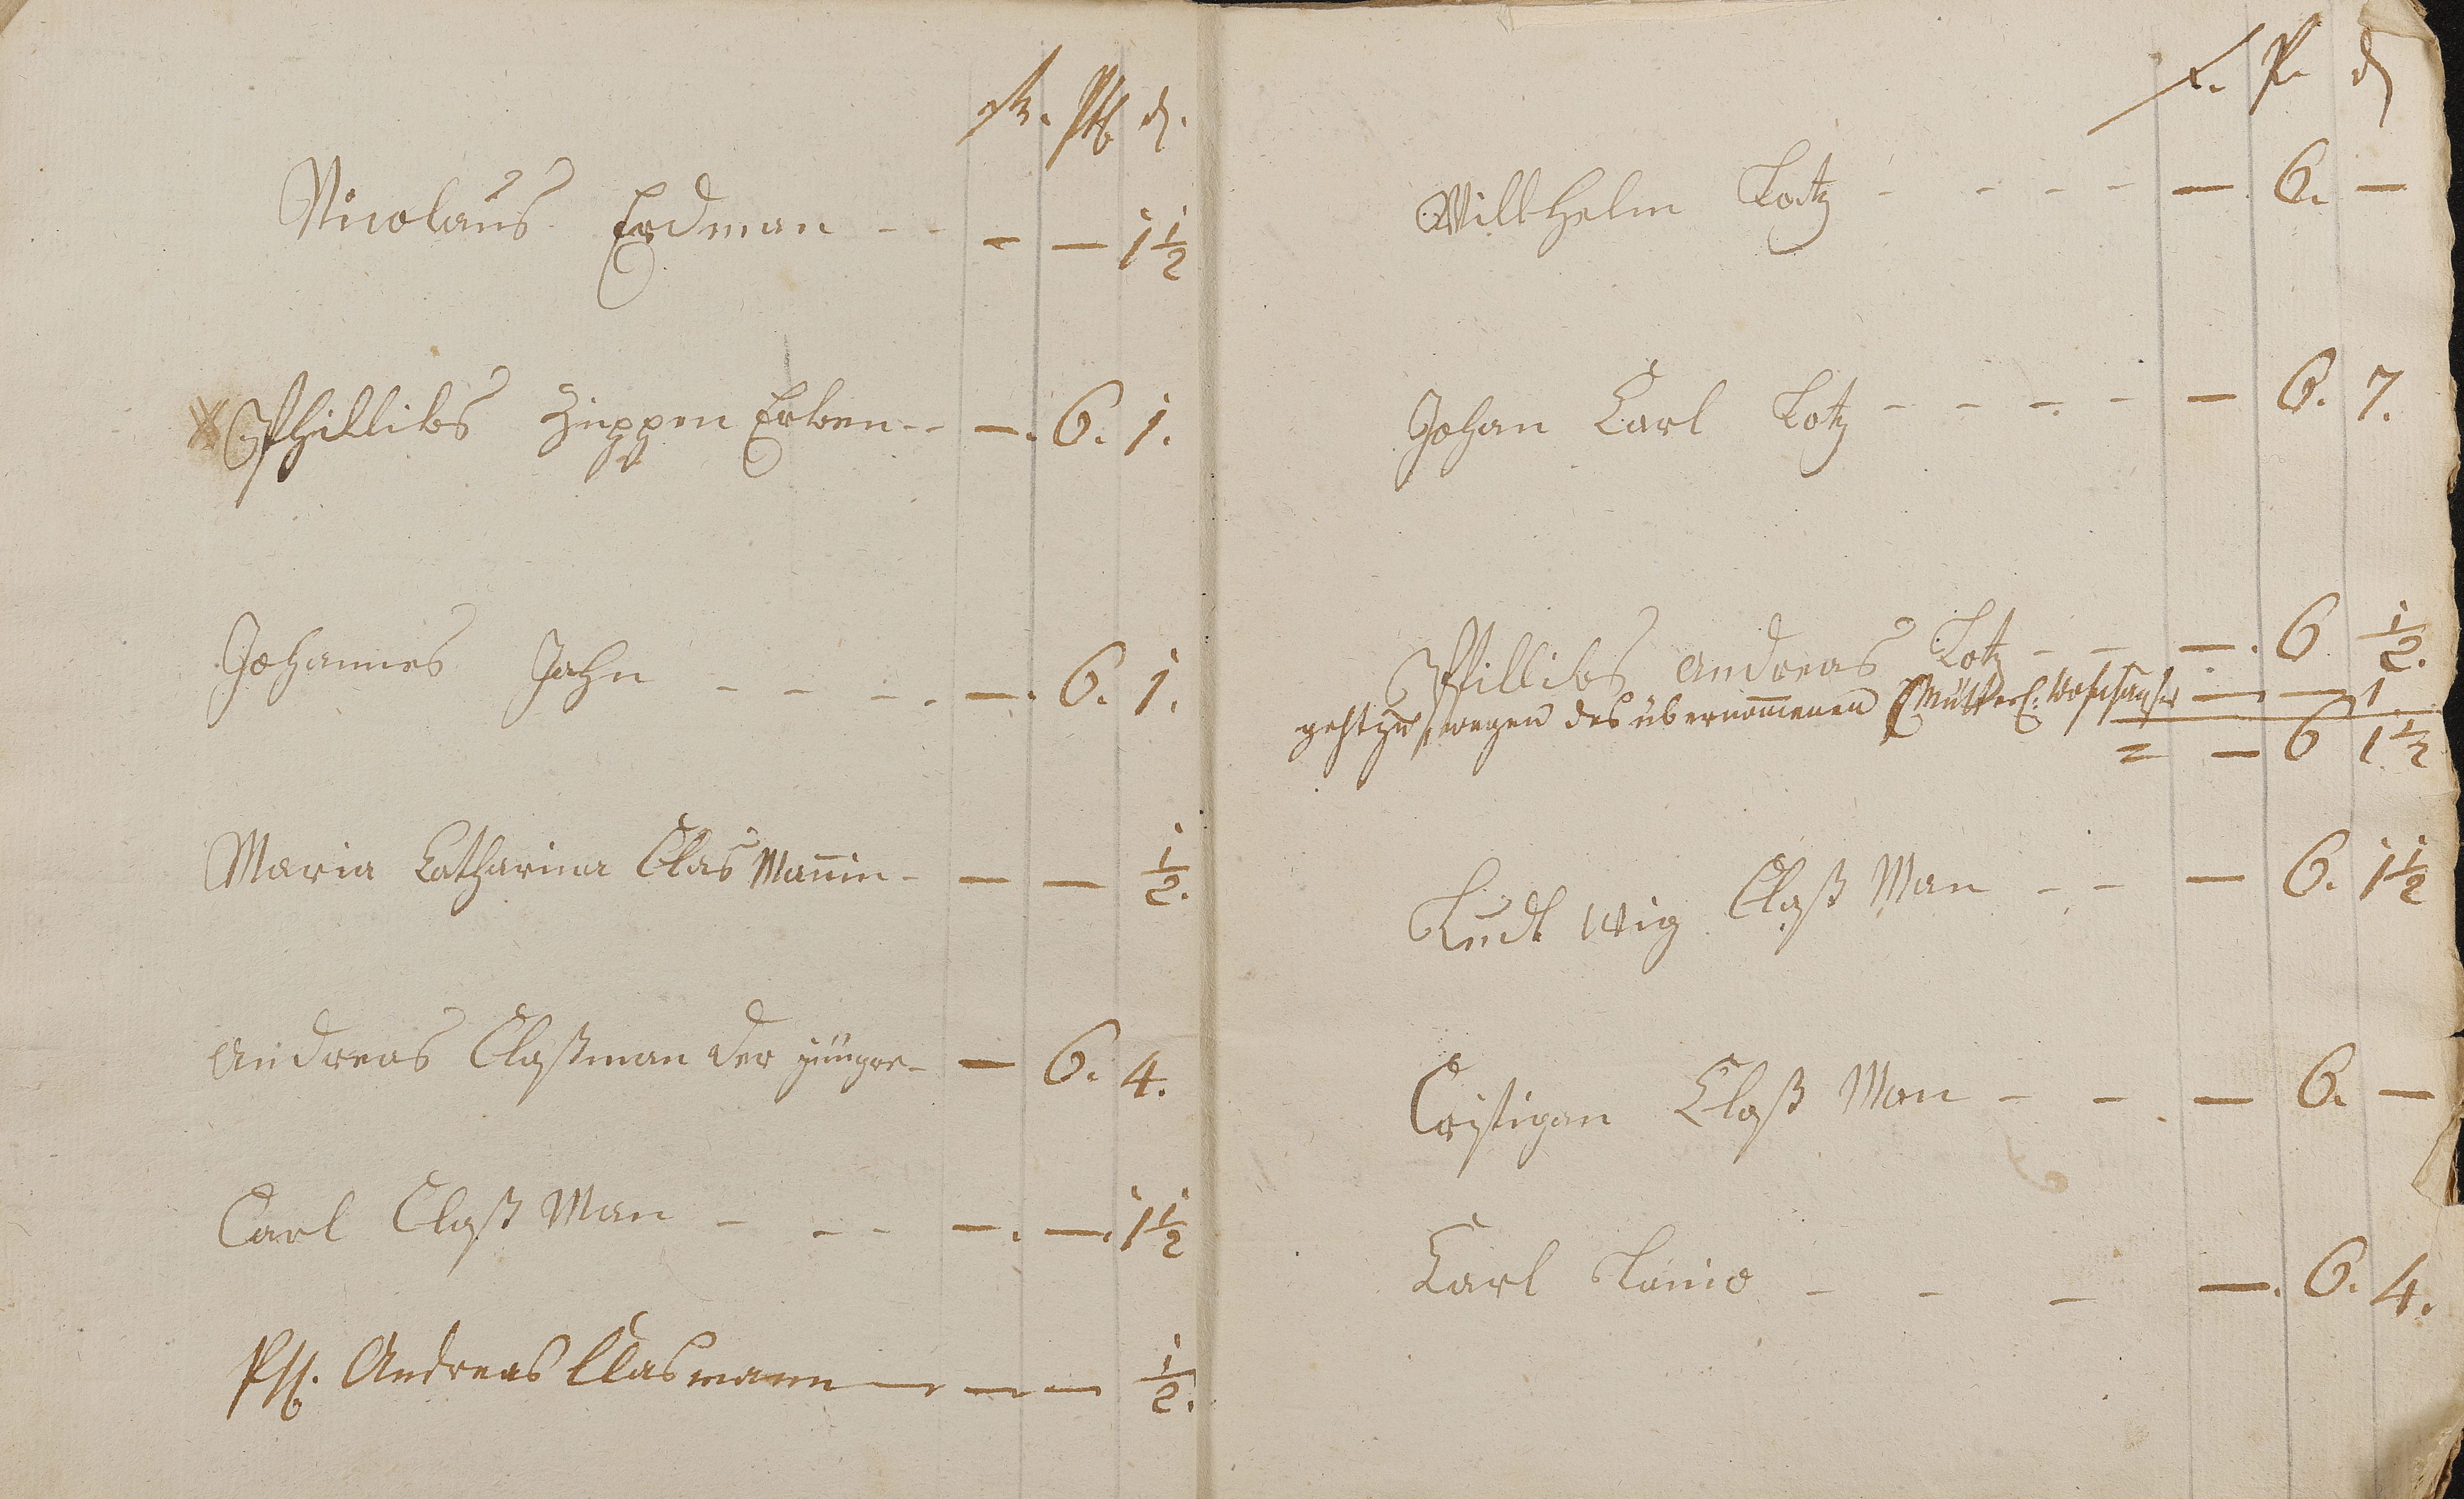 Pfd d.
Nicolaus Erdman - - - — 1 1/2
Phillibs Zieppen Erben - - —. 6. 1.
Johannes Jahn - - - - —. 6. 1.
Maria Catharina Clas Mañin - — — 1/2.
Andreas Claßman der jüngre - — 6. 4.
Carl Claß Man - - - —. —. 1 1/2
Ph. Andreas Clasmann — — — 1/2.
P. d
Willhelm Lotz - - - - — 6. —
Johan Carl Lotz - - - - — 6. 7.
Phillibs Andreas Lotz - - —. 6 1/2.
geht zu, wegen des übernom̄enen Mütterl. Wohnhauses — — 1
= — 6 1 1/2
Ludl wig Claß Man - - — 6. 1 1/2
Cristigan Claß Man - - — 6. —
Carl - - - —. 6. 4.